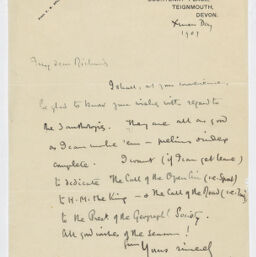 TEIGNMOUTH,
DEVON.
Xmas Day
1909
My dear Richards
I shall, at your convenience,
be glad to know your wishes with regard to
the 3 anthologies. They are all as good
as I can make 'em — prelims & index
complete. I want (if I can get leave)
to dedicate The Call of the Open Air
to H. M. the King — & The Call of the Road
to the Pres. of the Geograph! Society.
All good wishes of the season!
Yours sincerely